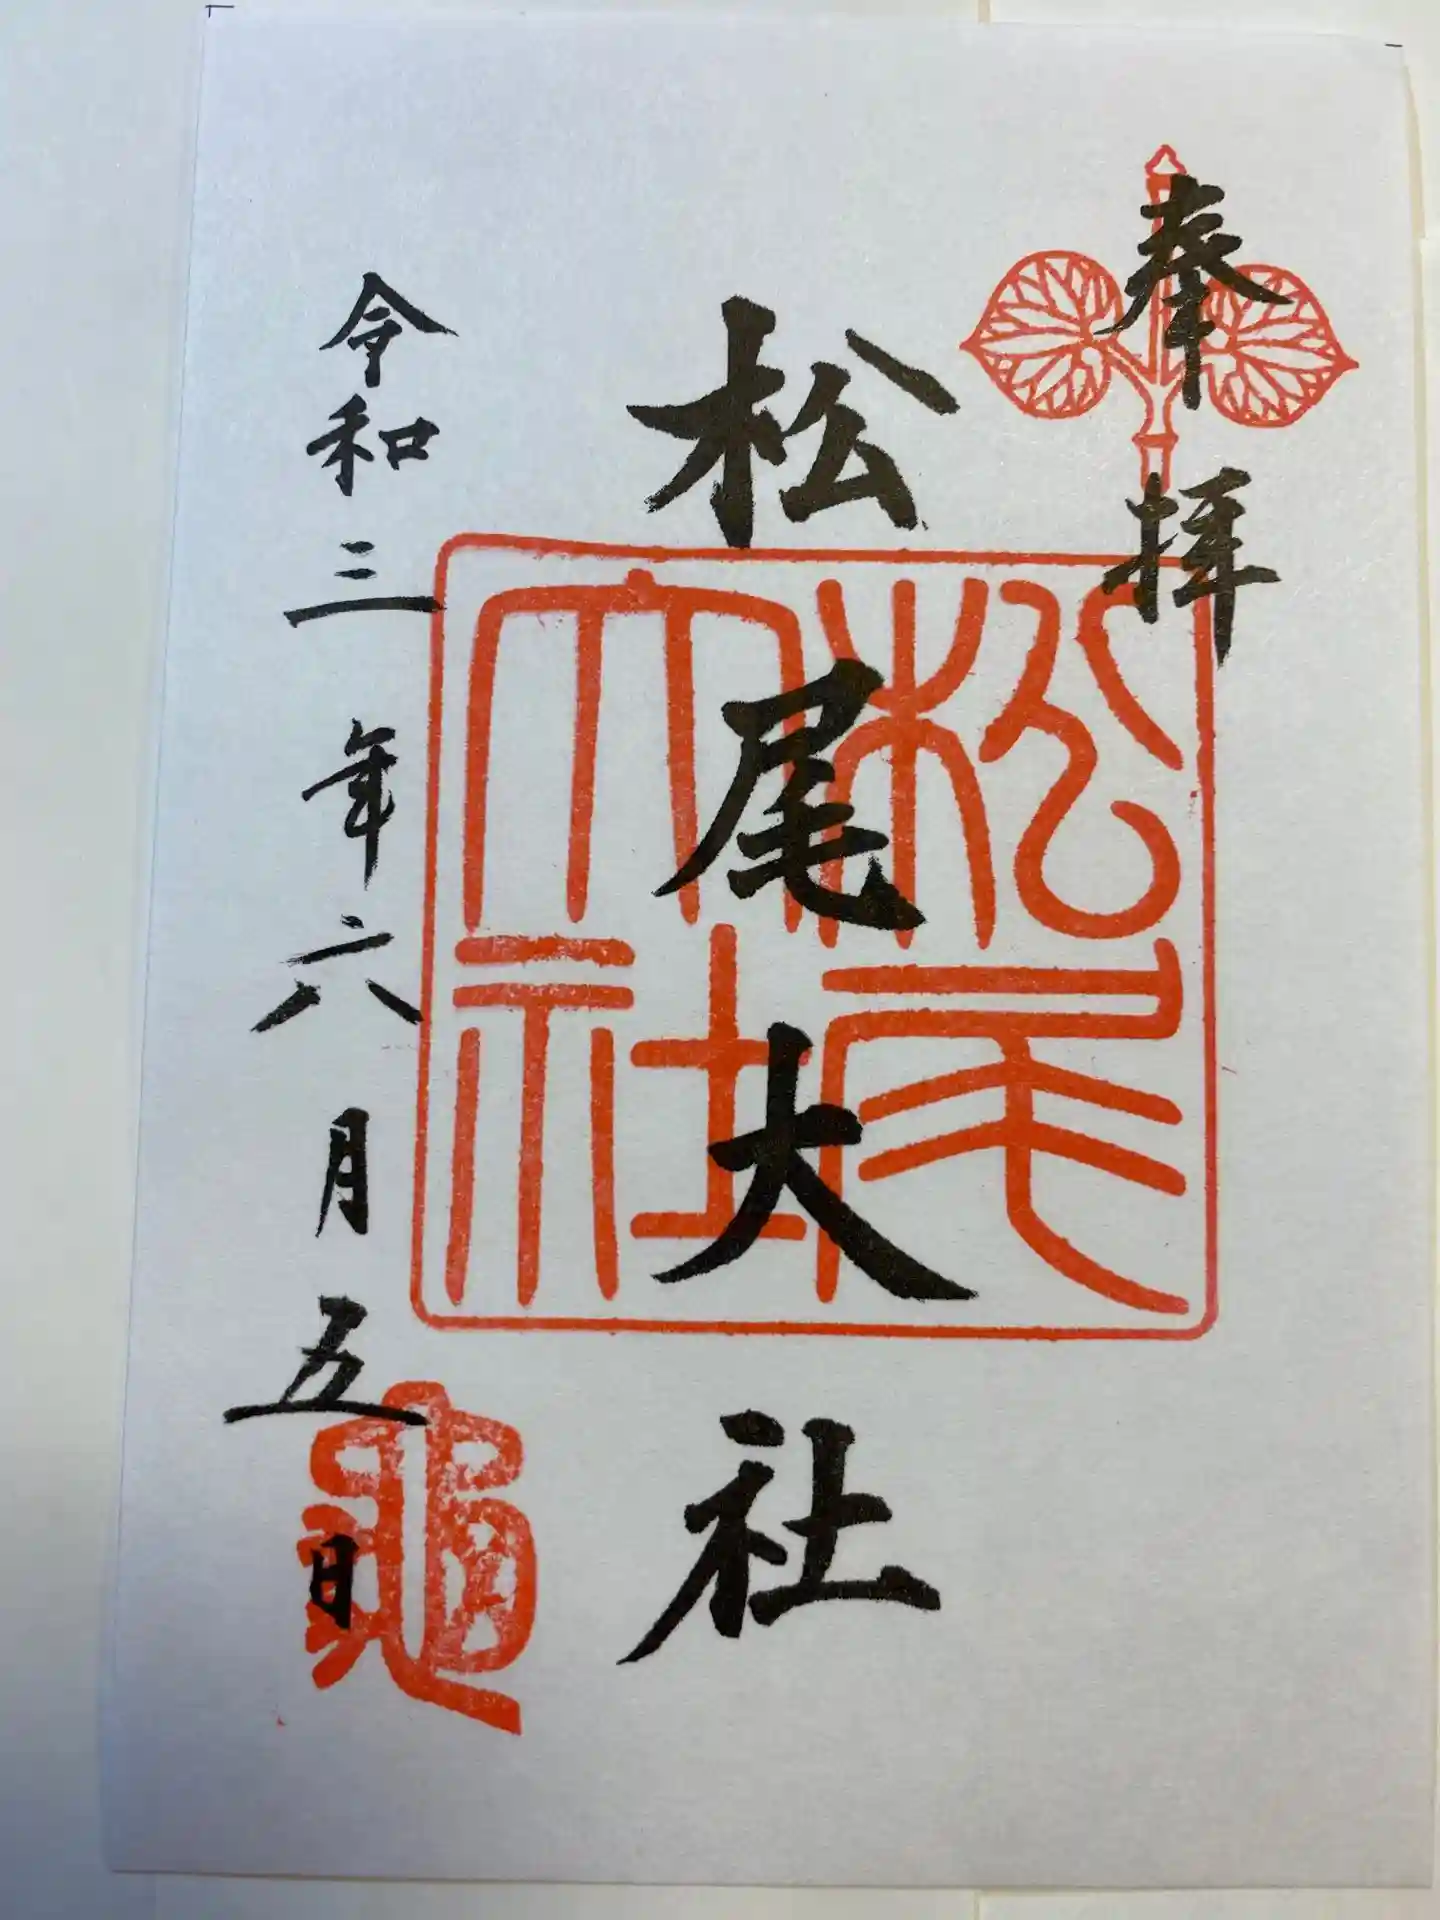 奉拝
松尾大社
松尾大社
令和三年六月五日
亀